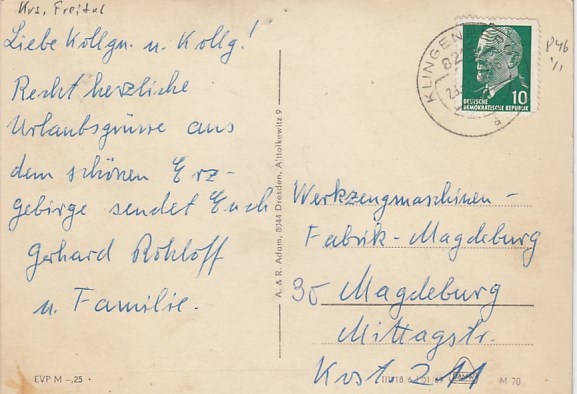 Krs. Freital
Liebe Kollgn. u. Kollg!
Recht herzliche
Urlaubsgrüsse aus
dem schönen Erz-
gebirge sendet Euch
Gerhard Rohloff
u. Familie.
EVP M –,25
A. & R. Adam, 8044 Dresden, Altolkewitz 9
KLINGENBERG
82
23.
a
10
DEUTSCHE
DEMOKRATISCHE REPUBLIK
P46
Werkzeugmaschinen-
Fabrik-Magdeburg
30 Magdeburg
Mittagstr.
Kvst. 211
M 70